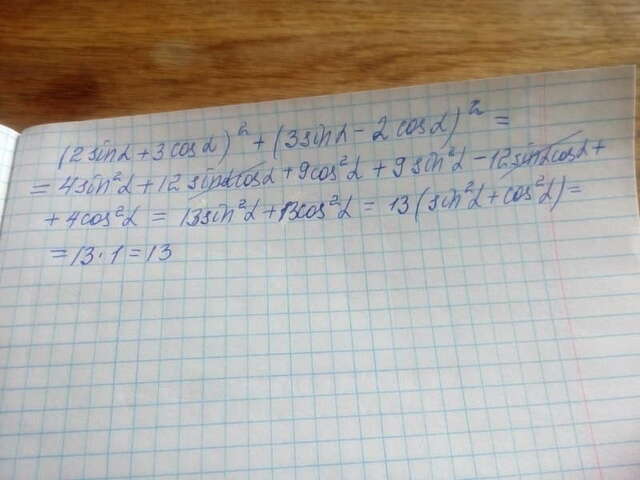 (2sinα+3cosα)²+(3sinα-2cosα)²=
=4sin²α+12sinαcosα+9cos²α+9sin²α-12sinαcosα+
+4cos²α=13sin²α+13cos²α=13(sin²α+cos²α)=
=13·1=13